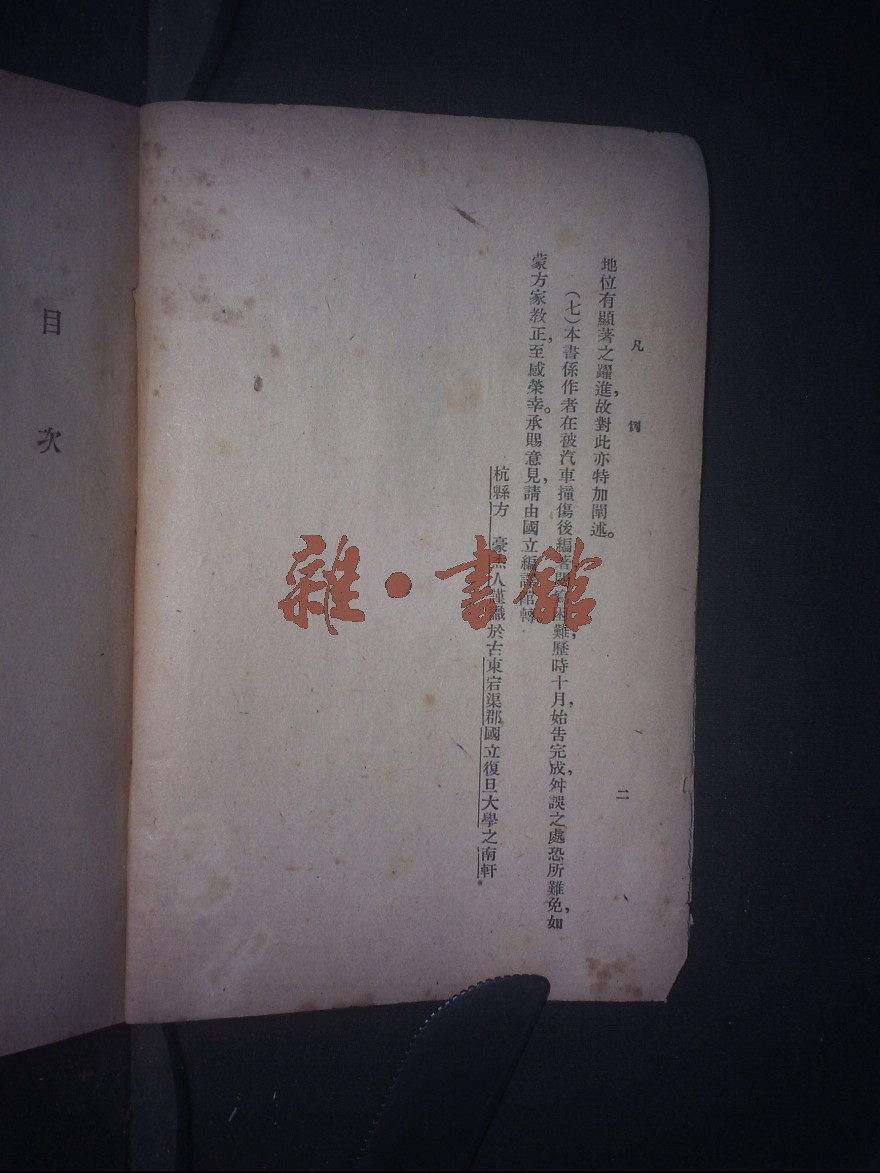 凡例
二
地位有顯著之躍進，故對此亦特加闡述。
（七）本書係作者在被汽車撞傷後編著，困難，歷時十月，始告完成，舛誤之處，恐所難免，如
蒙方家教正，至感榮幸。承賜意見，請由國立編譯館轉。
杭縣方 豪杰人謹識於古東宕渠郡國立復旦大學之南軒
目次
雜·書館